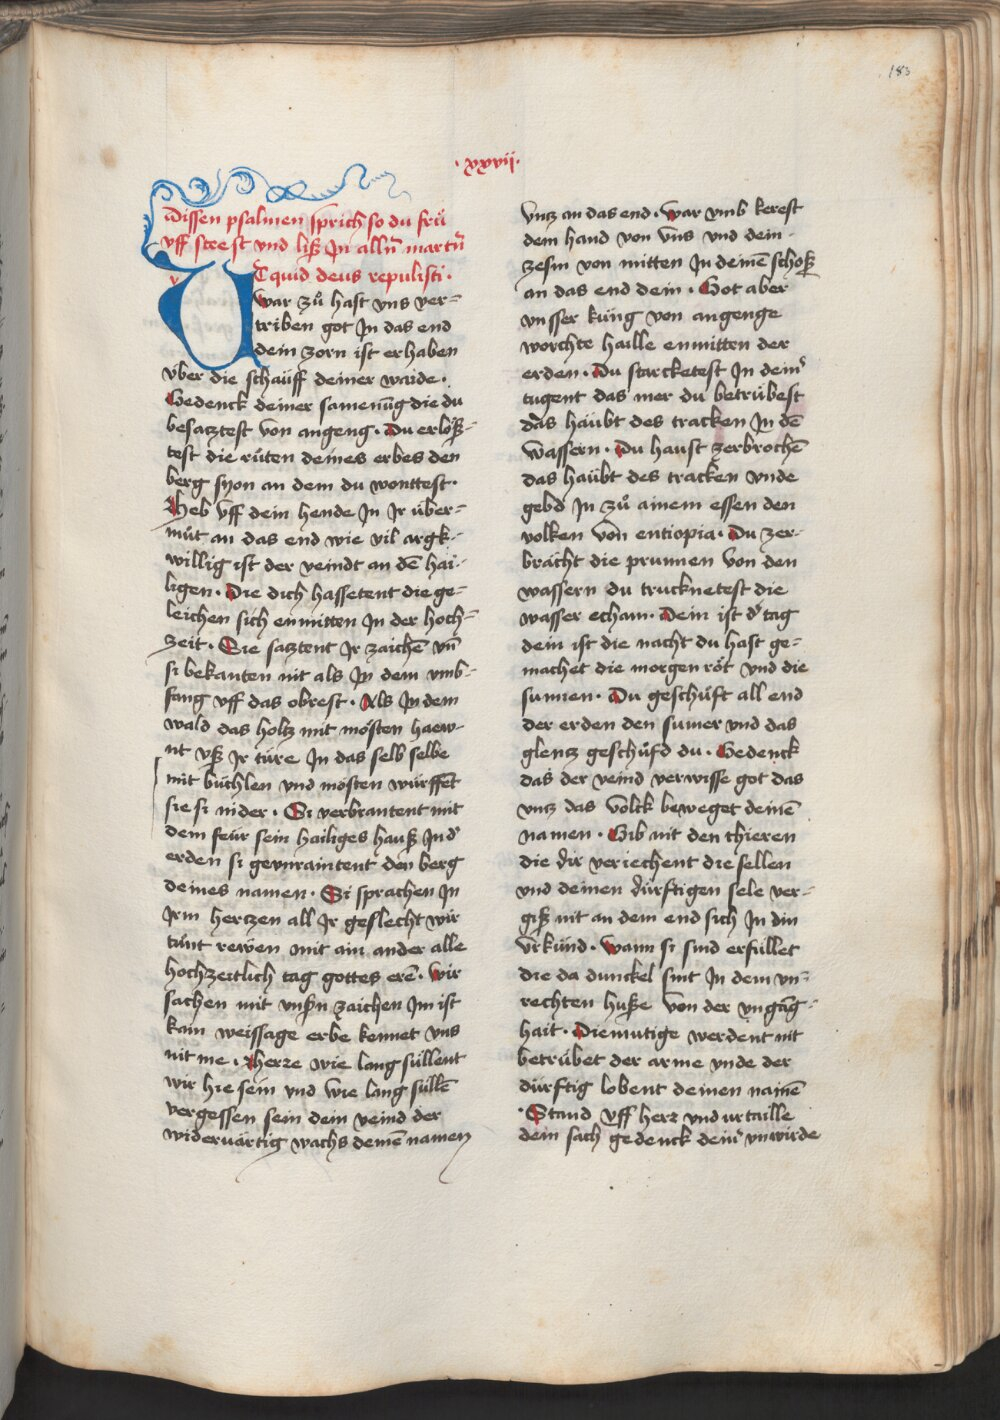 183
· xxvii ·
Dissen psalmen sprich so du frü
vff steest vnd liß Jn alln̄ martn̄
Vt quid deus repulisti ·
war zů hast vns ver=
triben got Jn das end
dein zorn ist erhaben
vber die schäuff deiner waide ·
Gedenck deiner samenūg die du
besaztest von angeng · Du erlöß=
test die rüten deines erbes den
berg syon an dem du wonttest ·
Heb vff dein hende Jn Jr über=
müt an das end wie vil argk=
willig ist der veindt an dē hai=
ligen · Die dich hassetent die ge=
leichen sich enmitten Jn der hoch=
zeit · Sie saztent Jr zaichē vn̄
si bekanten nit als Jn dem vmb=
fang vff das obrest · Als Jn dem
wald das holtz mit mösten haew=
nt vß Jr türe Jn das selb selbe
mit büchlen vnd mösten würffēt
sie si nider · Si verbrantent mit
dem feür sein hailiges hauß Jn d'
erden si gevnraintent den berg
deines namen · Si sprachen Jn
Jrm hertzen all Jr geslecht wir
tünt rewen mit ain ander alle
hochzeitlich tag gottes erē · Wir
sachen mit vnßn zaichen Jm ist
kain weissage erbe kennet vns
nit me · Herre wie lang süllent
wir hie sein vnd wie lang süllē
vergessen sein dein veind der
widerwärtig wachs deinē namen
vntz an das end · War vmb kerest
dem hand von vns vnd dein
zesm von mitten Jn deinē schoß
an das end dein · Got aber
vnsser küng von angenge
worchte haille enmitten der
erden · Du starcketest Jn dein'
tugent das mer du betrübest
das häubt des tracken Jn dē
wassern · Du haust zerbrochē
das haübt des tracken vnde
gebd Jn zů ainem essen den
volken von entiopia · Du zer=
bracht die prunnen von den
wassern du trucknetest die
wasser echam · Dein ist d' tag
dein ist die nacht du hast ge=
machet die morgen röt vnd die
sunnen · Du geschüft all end
der erden den sumer vnd das
glentz geschüfd du · Gedenck
das der veind verwisse got das
vntz das volck beweget deinē
namen · Gib nit den thieren
die dir veriechent die sellen
vnd deinen dürftigen sele ver=
giß nit an dem end sich Jn din
vrkünd · Wann si sind erfüllet
die da dunckel sint Jn dem vn=
rechten huße von der vngāg=
hait · Diemutige werdent nit
betrübet der arme vnde der
dürftig lobent deinen namē
· Stand vff herr vnd urtaille
dein sach gedenck dein' vnwirde